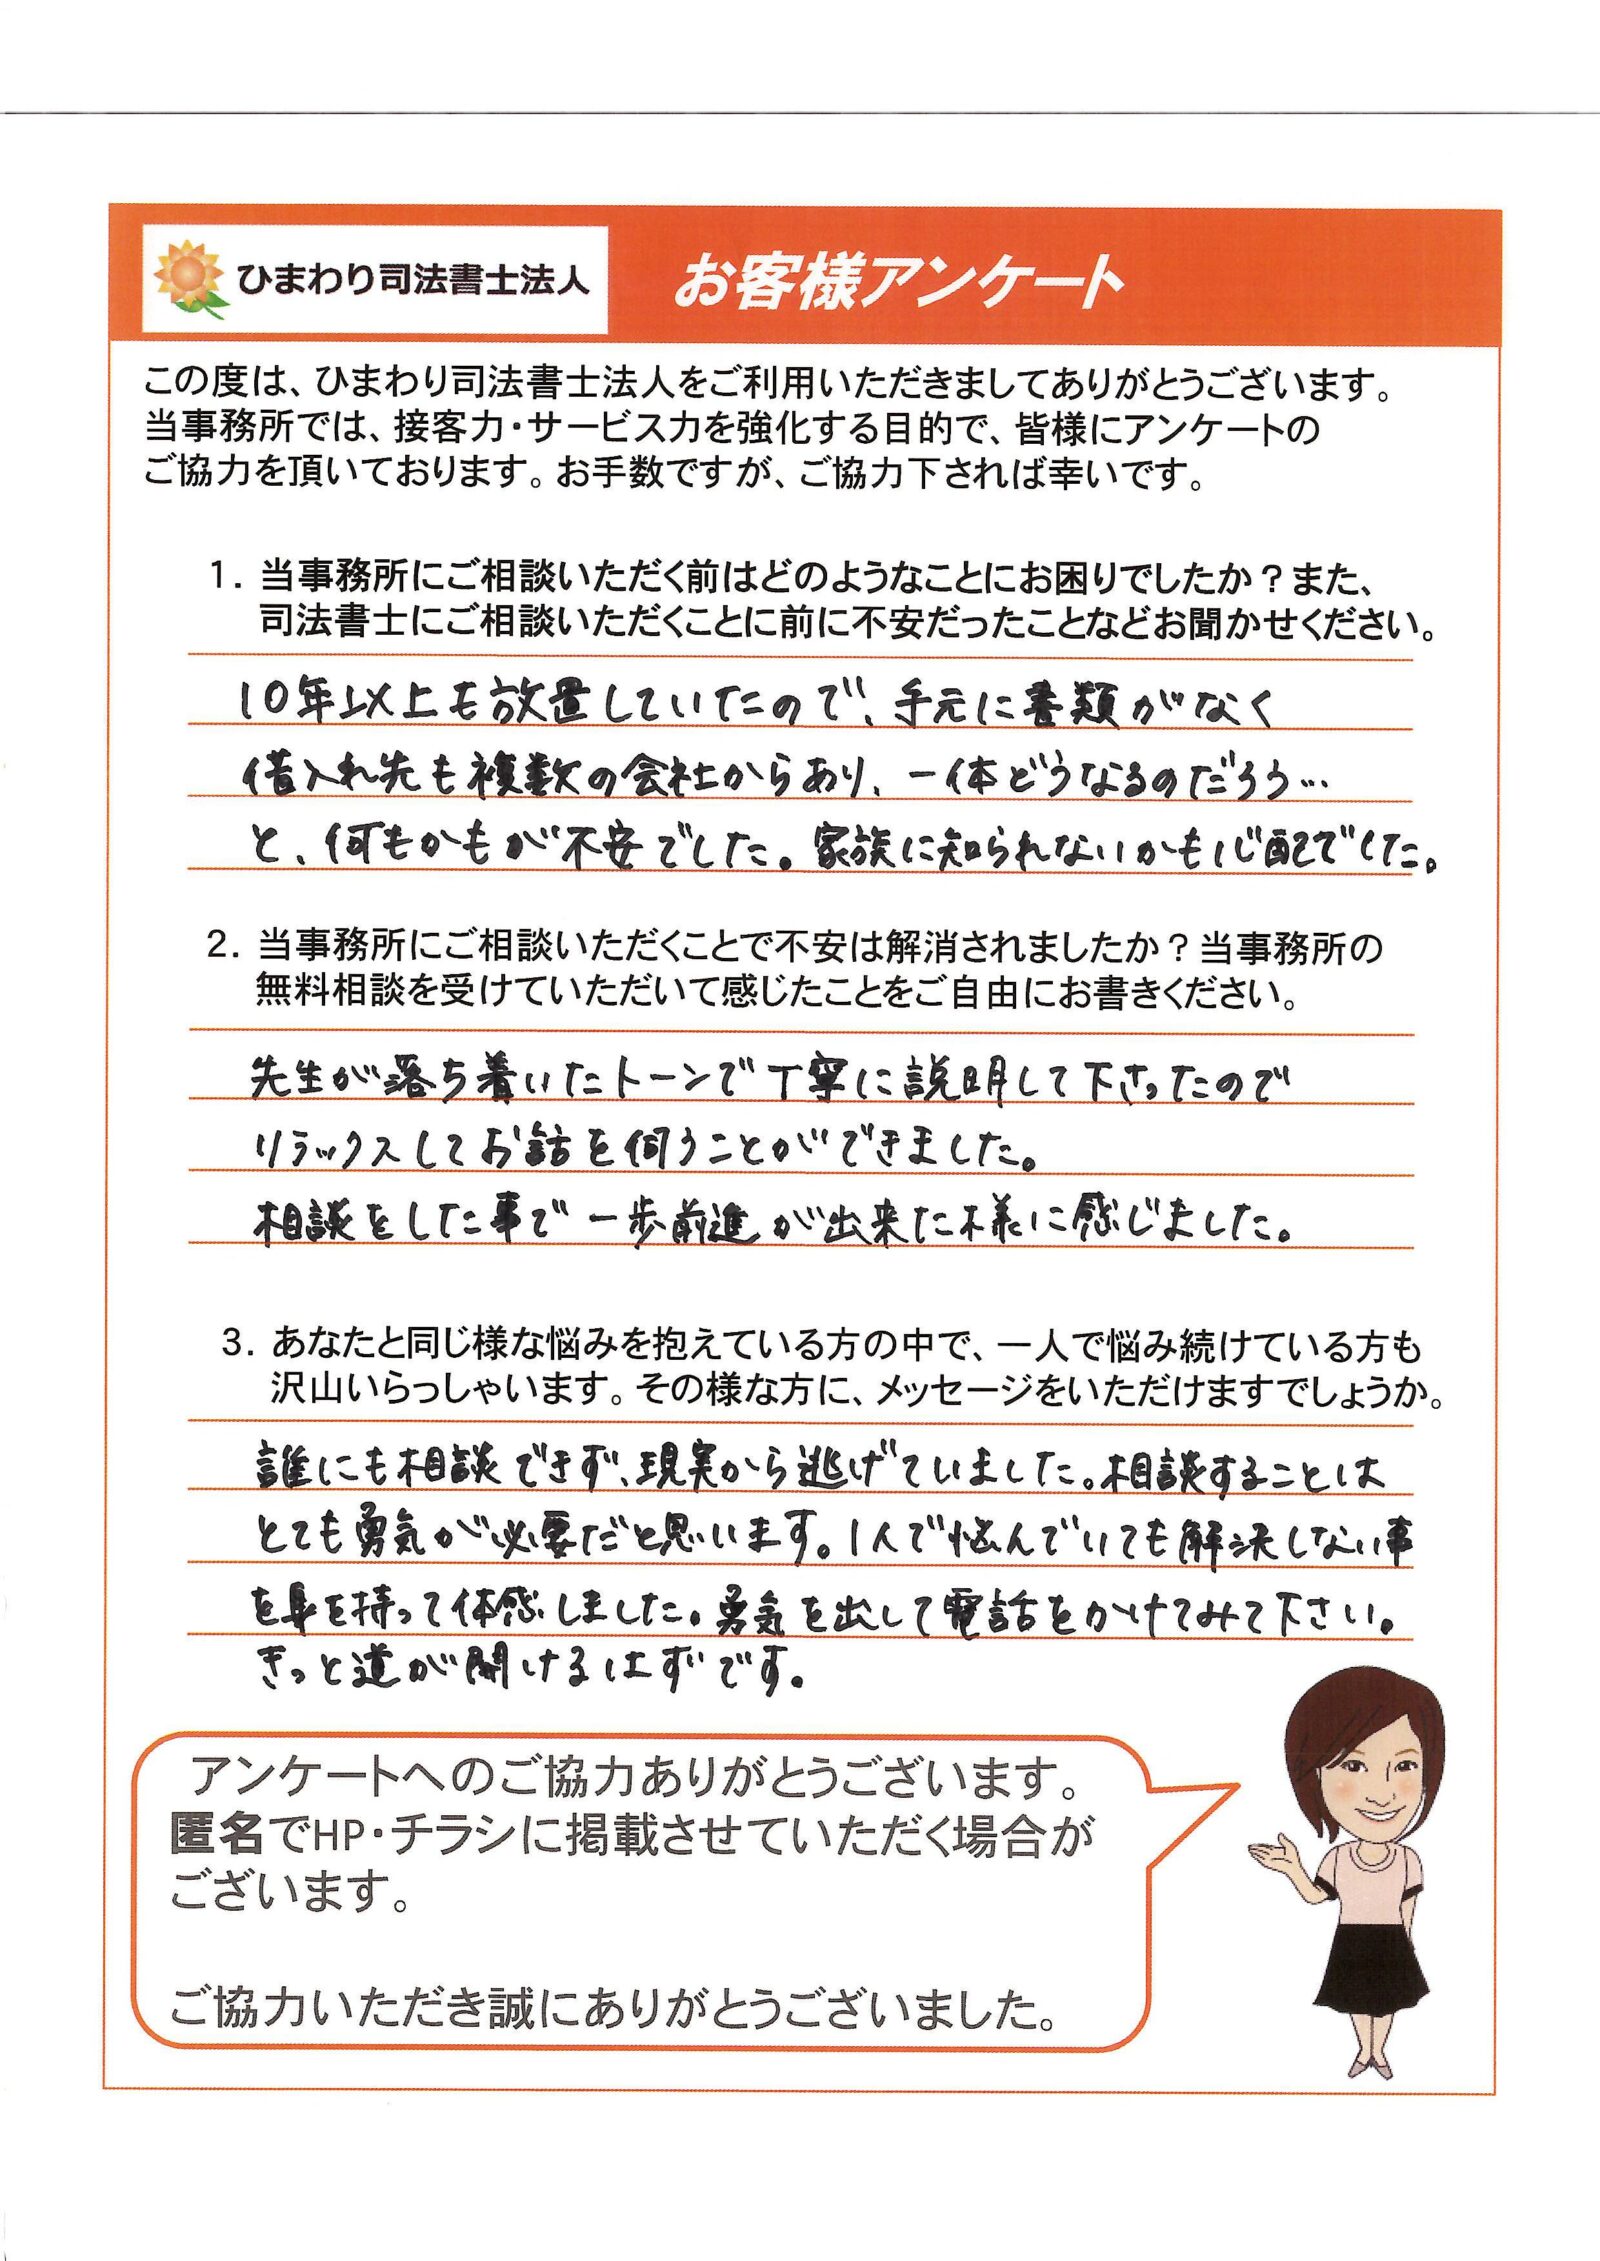 ひまわり司法書士法人
お客様アンケート
この度は、ひまわり司法書士法人をご利用いただきましてありがとうございます。
当事務所では、接客力・サービス力を強化する目的で、皆様にアンケートの
ご協力を頂いております。お手数ですが、ご協力下されば幸いです。
1. 当事務所にご相談いただく前はどのようなことにお困りでしたか？また、
司法書士にご相談いただくことに前に不安だったことなどお聞かせください。
10年以上も放置していたので、手元に書類がなく
借入れ先も複数の会社からあり、一体どうなるのだろう…
と、何もかもが不安でした。家族に知られないかも心配でした。
2. 当事務所にご相談いただくことで不安は解消されましたか？当事務所の
無料相談を受けていただいて感じたことをご自由にお書きください。
先生が落ち着いたトーンで丁寧に説明して下さったので
リラックスしてお話を伺うことができました。
相談をした事で一歩前進が出来た様に感じました。
3. あなたと同じ様な悩みを抱えている方の中で、一人で悩み続けている方も
沢山いらっしゃいます。その様な方に、メッセージをいただけますでしょうか。
誰にも相談できず、現実から逃げていました。相談することは
とても勇気が必要だと思います。1人で悩んでいても解決しない事
を身を持って体感しました。勇気を出して電話をかけてみて下さい。
きっと道が開けるはずです。
アンケートへのご協力ありがとうございます。
匿名でHP・チラシに掲載させていただく場合が
ございます。
ご協力いただき誠にありがとうございました。